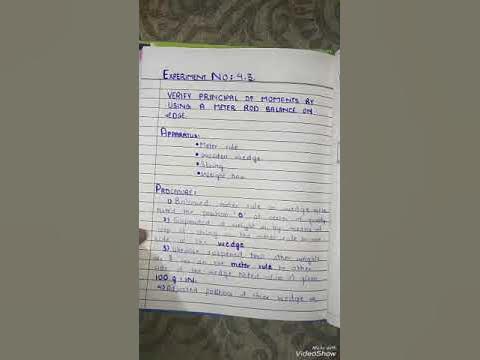 EXPERIMENT NO: 4.3.
VERIFY PRINCIPAL OF MOMENTS BY
USING A METER ROD BALANCE ON
EDGE.
APPARATUS:
• Meter rule
• wooden wedge
• String
• Weight box
PROCEDURE:
1) Balanced meter rule on wedge and
noted the position 'G' as centre of gravity
2) Suspended a weight w₁ by means of
loop of string the meter rule on one
side of the wedge
3) Likewise suspended two other weights
the meter rule on other
side of the wedge
100 g = 1N.
4) Adjusted position of three wedge
Made with
VideoShow